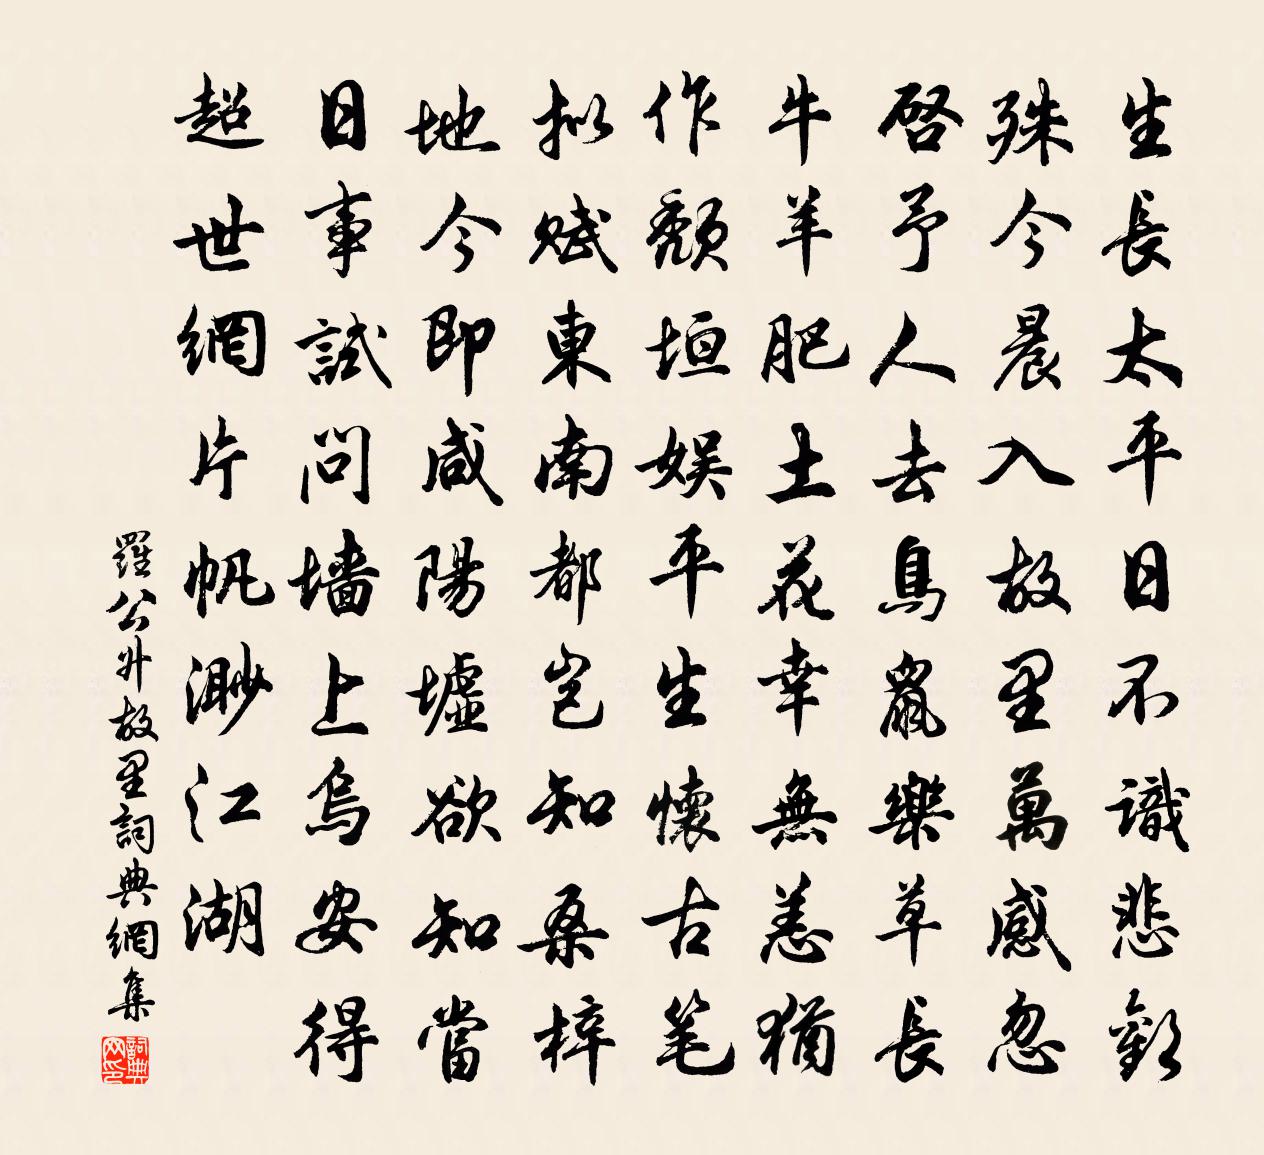 生長太平日不識悲歡
殊今晨入故里萬感忽
啓予人去鳥鼠樂草長
牛羊肥土花幸無恙猶
作頽垣娛平生懷古笔
拟赋東南都豈知桑梓
地今即咸陽墟欲知當
日事試問墻上烏安得
超世網片帆渺江湖
羅公升故里詞典網集
詞典网印